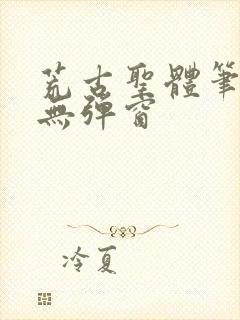 荒古聖體筆
無彈窗
冷夏